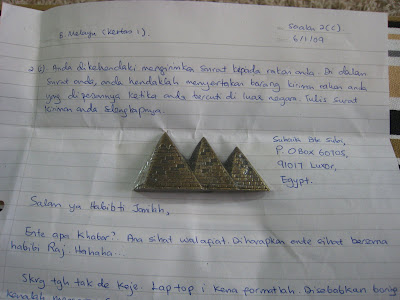 B. Melayu (Kertas 1).
Soalan 2(c).
6/1/09
2 (c) Anda dikehendaki mengirimkan surat kepada rakan anda. Di dalam
surat anda, anda hendaklah menyertakan barang kiriman rakan anda
yng dipesannya ketika anda bercuti di luar negara. Tulis surat
kiriman anda selengkapnya.
Suhaila Bte Sidin,
P.O Box 60705,
91017 Luxor,
Egypt.
Salam ya Habibti Jamilah,
Ente apa khabar? Ana sihat walafiat. Diharapkan ente sihat bersama
habibi Raj. Hahaha..
Skrg tgh tak de keje. Lap top i kena formatlah. Disebabkan